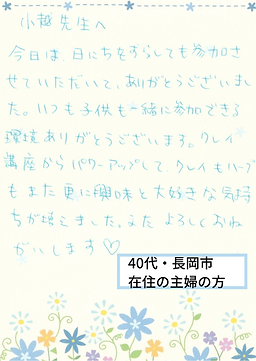 小越先生へ
今日は、日にちをずらしても参加さ
せていただいて、ありがとうございまし
た。いつも子供も一緒に参加できる
環境ありがとうございます。クレイ
講座からパワーアップして、クレイもハーブ
もまた更に興味と大好きな気持
ちが増えました。またよろしくおね
がいします♡
40代・長岡市
在住の主婦の方